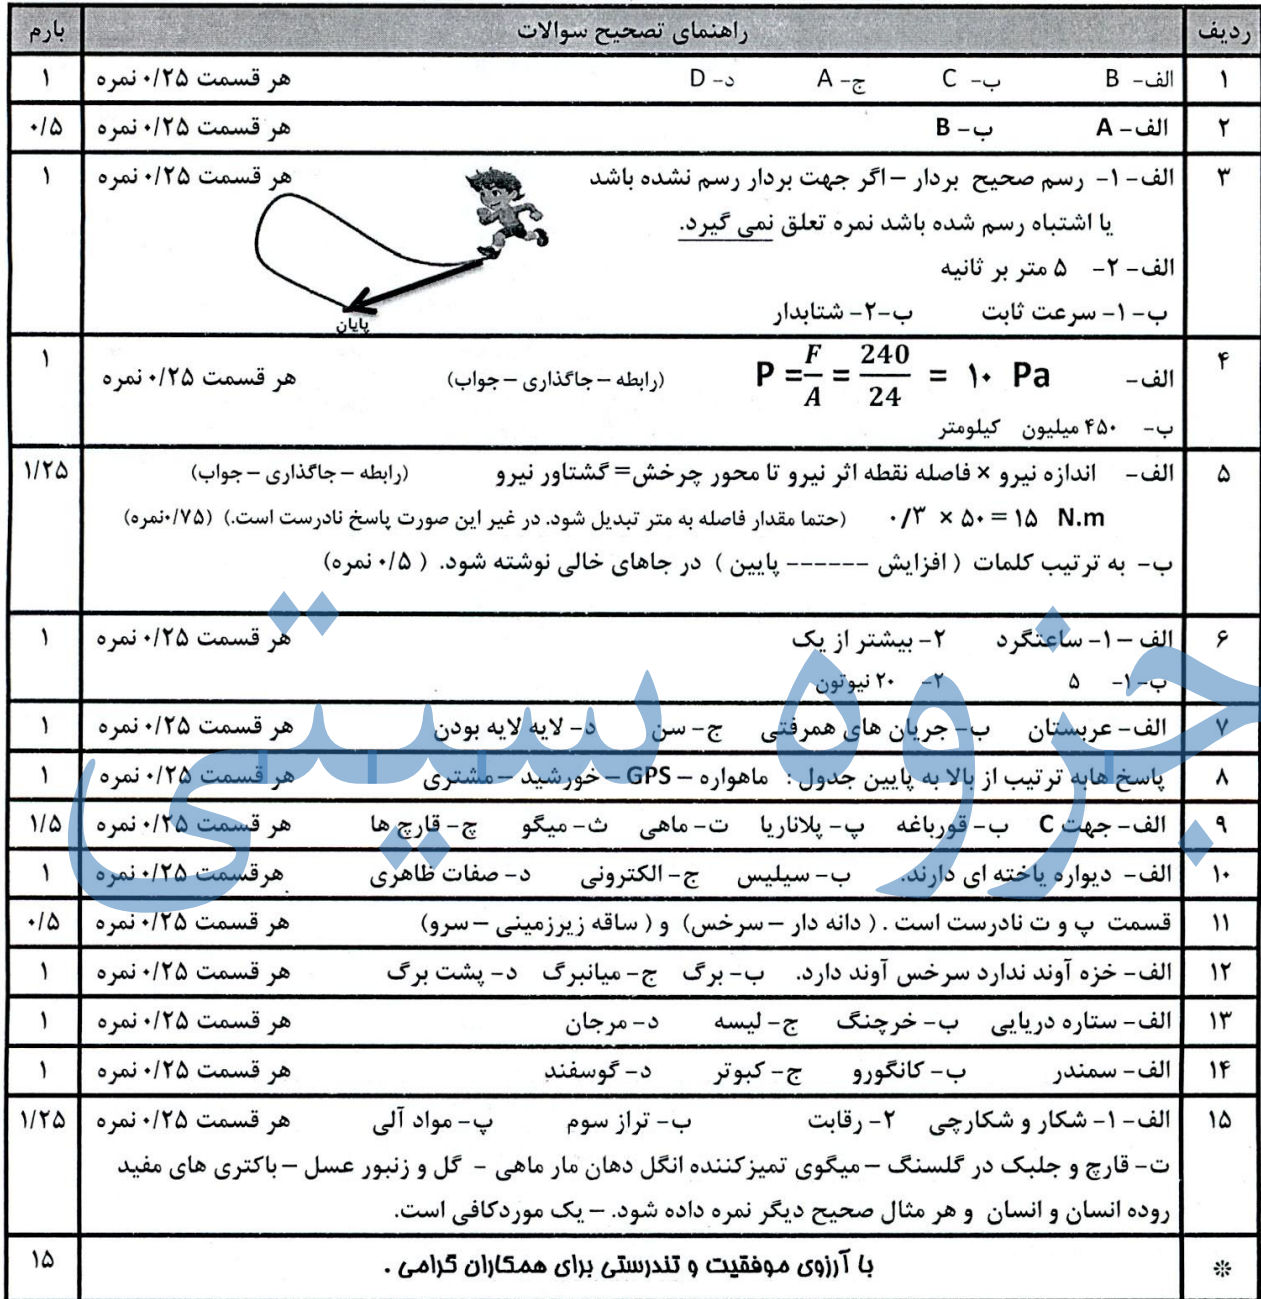 ردیف راهنمای تصحیح سوالات بارم
۱ الف- B ب- C ج- A د- D هر قسمت ۰/۲۵ نمره ۱
۲ الف- A ب- B هر قسمت ۰/۲۵ نمره ۰/۵
۳ الف-۱- رسم صحیح بردار – اگر جهت بردار رسم نشده باشد هر قسمت ۰/۲۵ نمره ۱
یا اشتباه رسم شده باشد نمره تعلق نمی گیرد.
الف-۲- ۵ متر بر ثانیه
ب-۱- سرعت ثابت ب-۲- شتابدار
پایان
۴ الف- P = F/A = 240/24 = ۱۰ Pa (رابطه – جاگذاری – جواب) هر قسمت ۰/۲۵ نمره ۱
ب- ۴۵۰ میلیون کیلومتر
۵ الف- اندازه نیرو × فاصله نقطه اثر نیرو تا محور چرخش= گشتاور نیرو (رابطه – جاگذاری – جواب) ۱/۲۵
۰/۳ × ۵۰ = ۱۵ N.m (حتما مقدار فاصله به متر تبدیل شود. در غیر این صورت پاسخ نادرست است.) (۰/۷۵نمره)
ب- به ترتیب کلمات ( افزایش ------ پایین ) در جاهای خالی نوشته شود. ( ۰/۵ نمره)
۶ الف –۱- ساعتگرد ۲- بیشتر از یک هر قسمت ۰/۲۵ نمره ۱
ب-۱- ۵ ۲- ۲۰ نیوتون
۷ الف- عربستان ب- جریان های همرفتی ج- سن د- لایه لایه بودن هر قسمت ۰/۲۵ نمره ۱
۸ پاسخ هابه ترتیب از بالا به پایین جدول : ماهواره – GPS – خورشید – مشتری هر قسمت ۰/۲۵ نمره ۱
۹ الف- جهت C ب- قورباغه پ- پلاناریا ت- ماهی ث- میگو چ- قارچ ها هر قسمت ۰/۲۵ نمره ۱/۵
۱۰ الف- دیواره یاخته ای دارند. ب- سیلیس ج- الکترونی د- صفات ظاهری هرقسمت ۰/۲۵ نمره ۱
۱۱ قسمت پ و ت نادرست است . ( دانه دار – سرخس) و ( ساقه زیرزمینی – سرو) هر قسمت ۰/۲۵ نمره ۰/۵
۱۲ الف- خزه آوند ندارد سرخس آوند دارد. ب- برگ ج- میانبرگ د- پشت برگ هر قسمت ۰/۲۵ نمره ۱
۱۳ الف- ستاره دریایی ب- خرچنگ ج- لیسه د- مرجان هر قسمت ۰/۲۵ نمره ۱
۱۴ الف- سمندر ب- کانگورو ج- کبوتر د- گوسفند هر قسمت ۰/۲۵ نمره ۱
۱۵ الف-۱- شکار و شکارچی ۲- رقابت ب- تراز سوم پ- مواد آلی هر قسمت ۰/۲۵ نمره ۱/۲۵
ت- قارچ و جلبک در گلسنگ – میگوی تمیزکننده انگل دهان مار ماهی - گل و زنبور عسل – باکتری های مفید
روده انسان و انسان و هر مثال صحیح دیگر نمره داده شود. – یک موردکافی است.
با آرزوی موفقیت و تندرستی برای همکاران گرامی . ۱۵
جزوه سیتی